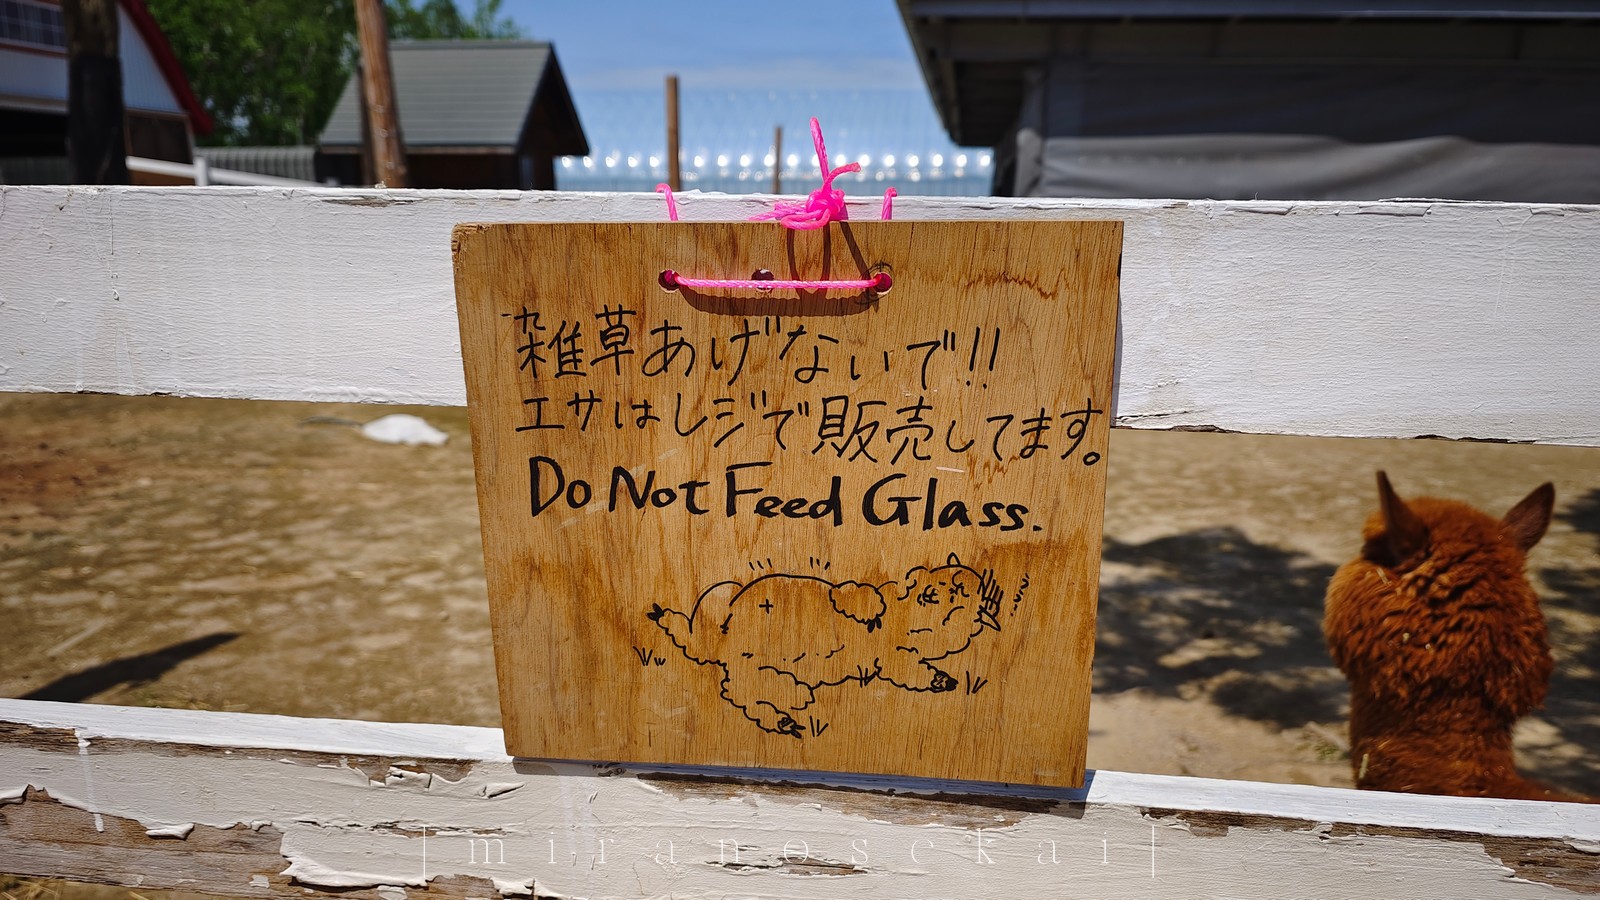 雑草あげないで!!
エサはレジで販売してます。
Do Not Feed Glass.
|miranosekai|